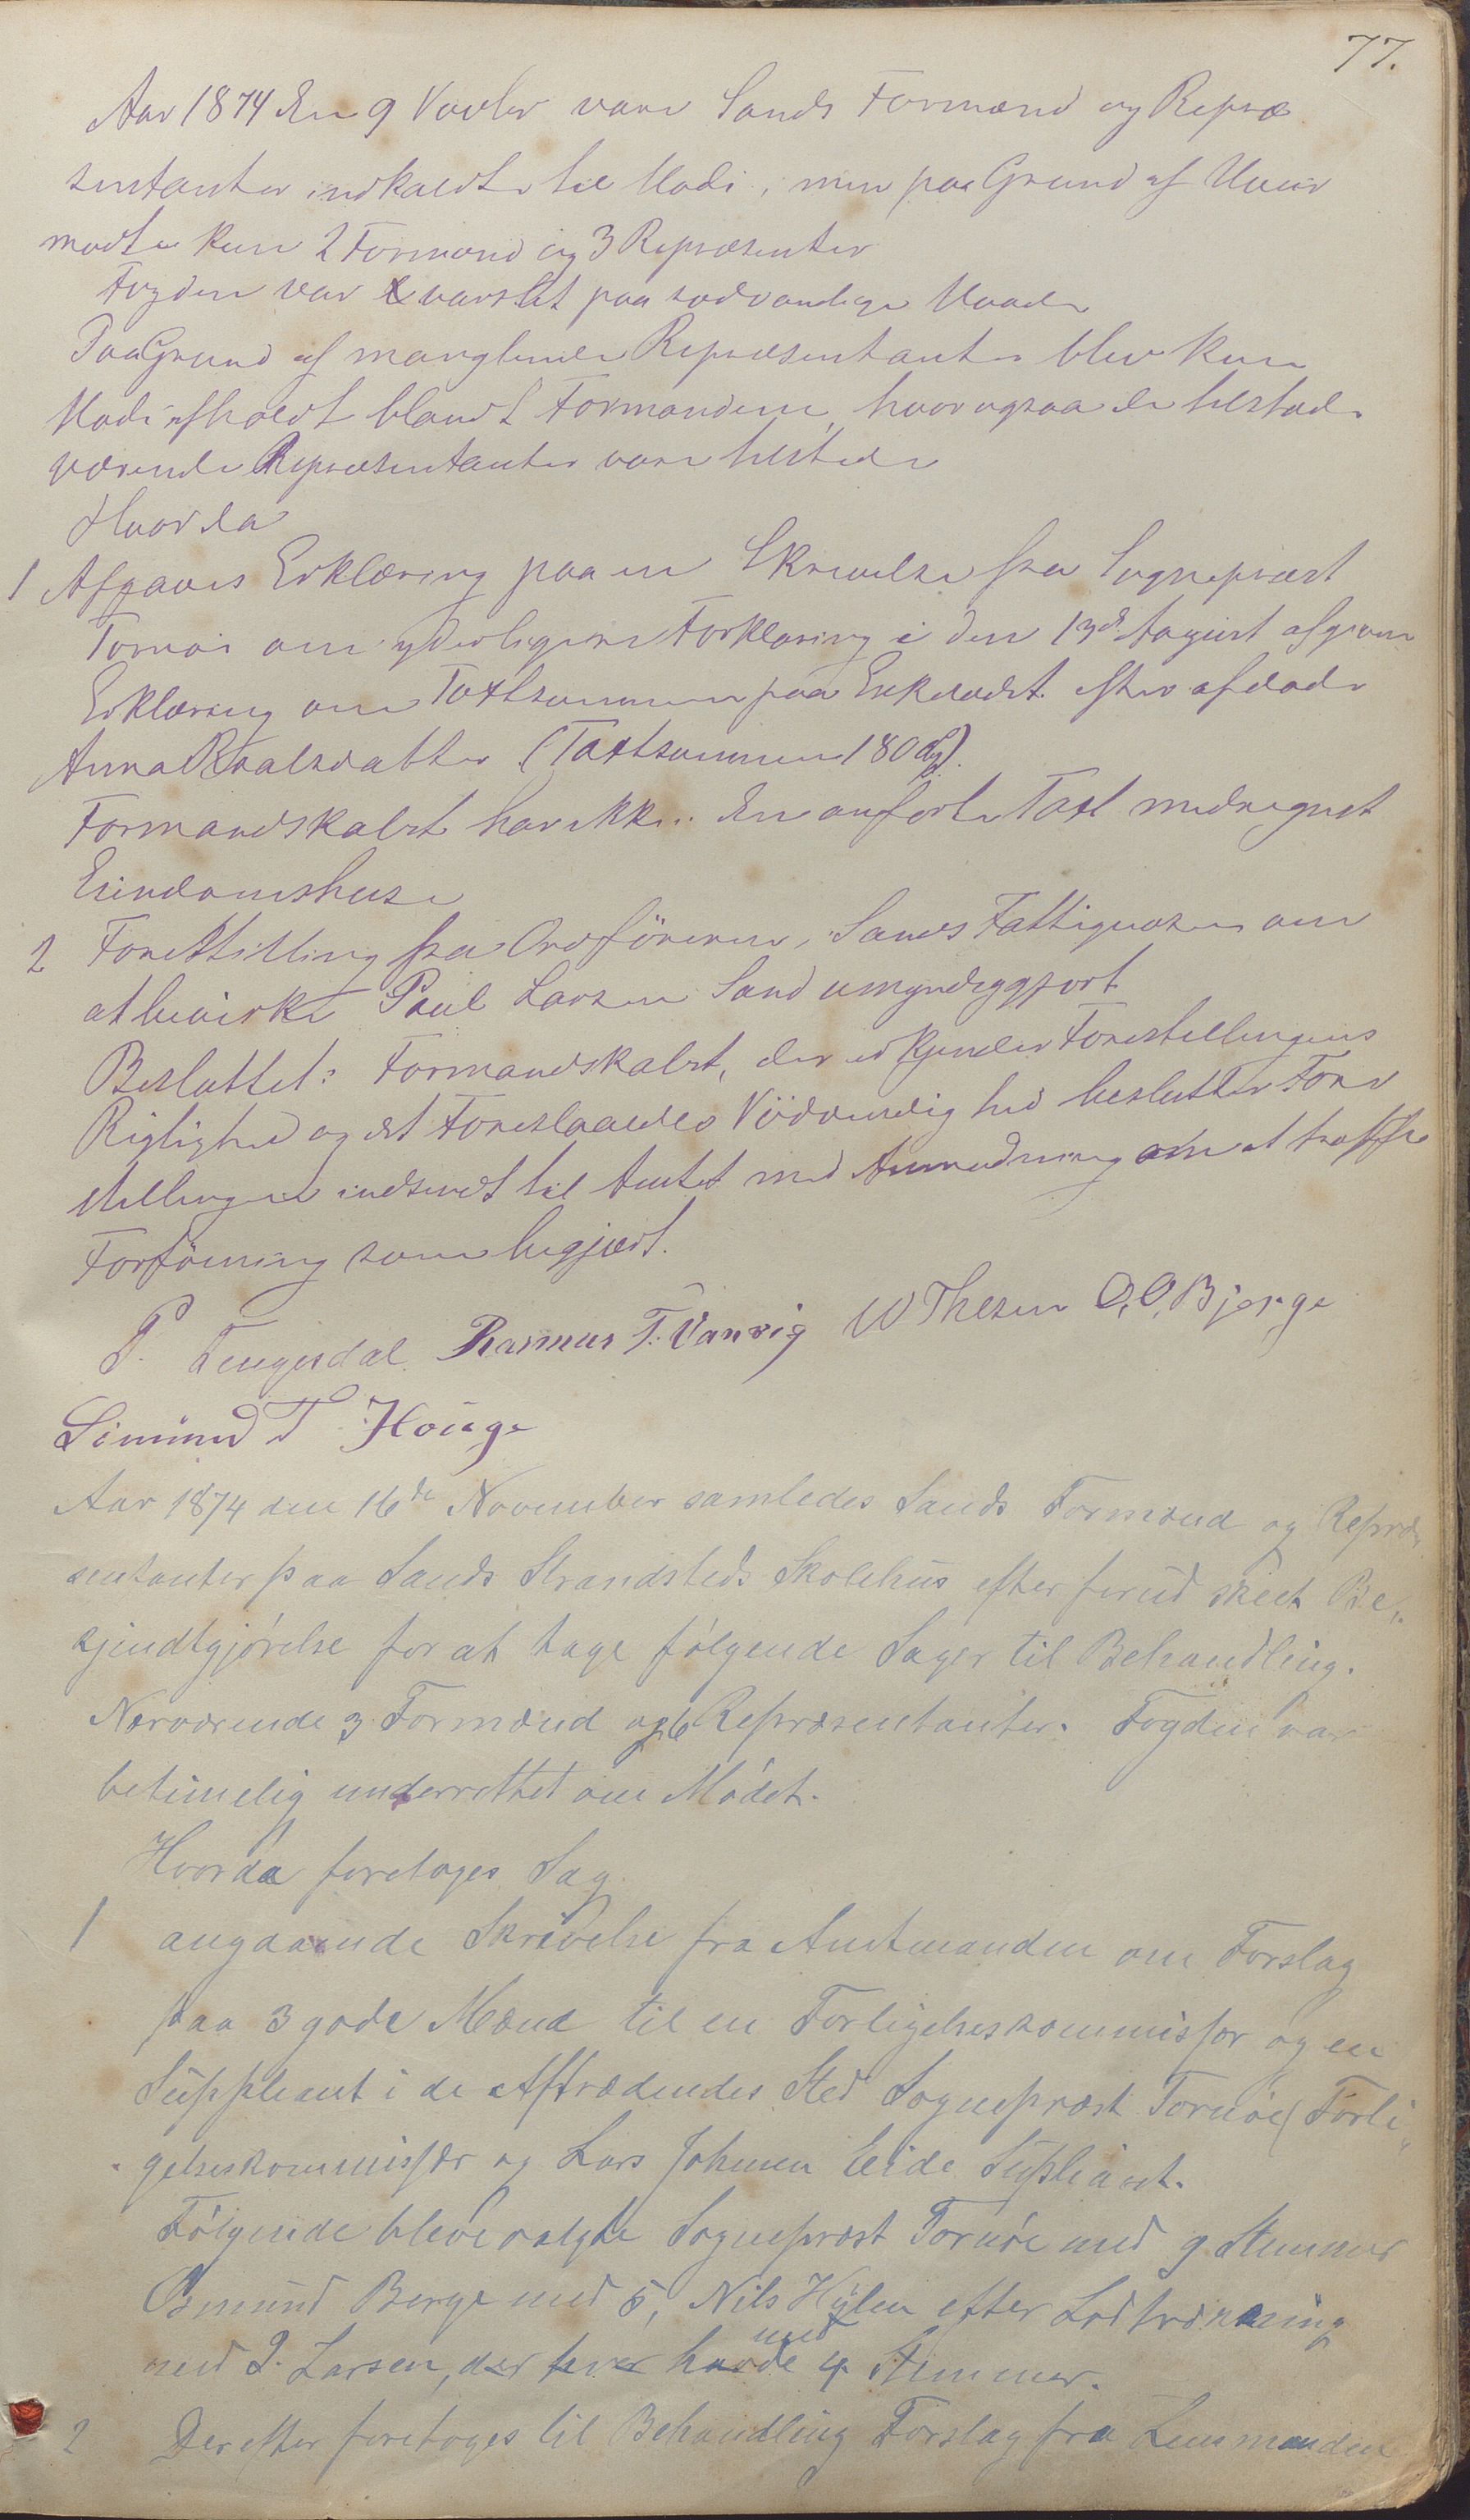 77.
Aar 1874 den 9 Novbr vare Sands Formænd og Repræ
sentanter indkaldte til Møde, men paa Grund af Uveir
mødte kun 2 Formænd og 3 Repræsenter
Fogden var varslet paa sædvanlige Maade
Paa Grund af manglende Repræsentanter blev kun
Møde afholdt blandt Formændene, hvor ogsaa de tilstede
værende Repræsentanter vare tilstede
Hvorda
1 Afgaves Erklæring paa en Skrivelse fra Sogneprest
Tornøe om yderligere Forklaring i den 13de August afgivne
Erklæring om Taxtsummen paa Enkesædet efter afdøde
Anna Roalsdatter (Taxtsummen 180 Spd).
Formandskabet har ikke i den anførte Taxt medregnet
Eiendomshuse
2 Forestilling fra Ordføreren i Sands Fattigvæsen om
at bevirke Poul Larsen Sand umyndiggjort
Besluttet: Formandskabet, der erkjender Forestillingens
Rigtighed og det Foreslaaedes Nødvendighed beslutter Fore
stillingen indsendt til Amtet med Anmodning om at træffe
Forføining som begjært.
P. Tengesdal Rasmus T. Vanvig W Thesen O. O. Bjerge
Simund T Houge
Aar 1874 den 16de November samledes Sands Formænd og Repræ
sentanter paa Sands Strandsteds Skolehus efter forud skeet Be„
kjendtgjørelse for at tage følgende Sager til Behandling.
Nærværende 3 Formænd og 6 Repræsentanter. Fogden var
betimelig underrettet om Mødet.
Hvorda foretoges Sag
1 angaaende Skrivelse fra Amtmanden om Forslag
paa 3 gode Mænd til en Forligelseskommissær og en
Suppleant i de Aftrædendes Sted Sogneprest Tornøe (Forli„
gelseskommissær og Lars Johnsen Eide Supleant.
Følgende bleve valgte Sogneprest Tornøe med 9 Stemmer
Osmund Berge med 5, Nils Hylen efter Lodtrækning
med P. Larsen, der hver havde med 4 Stemmer.
2 Derefter foretoges til Behandling Forslag fra Lensmanden